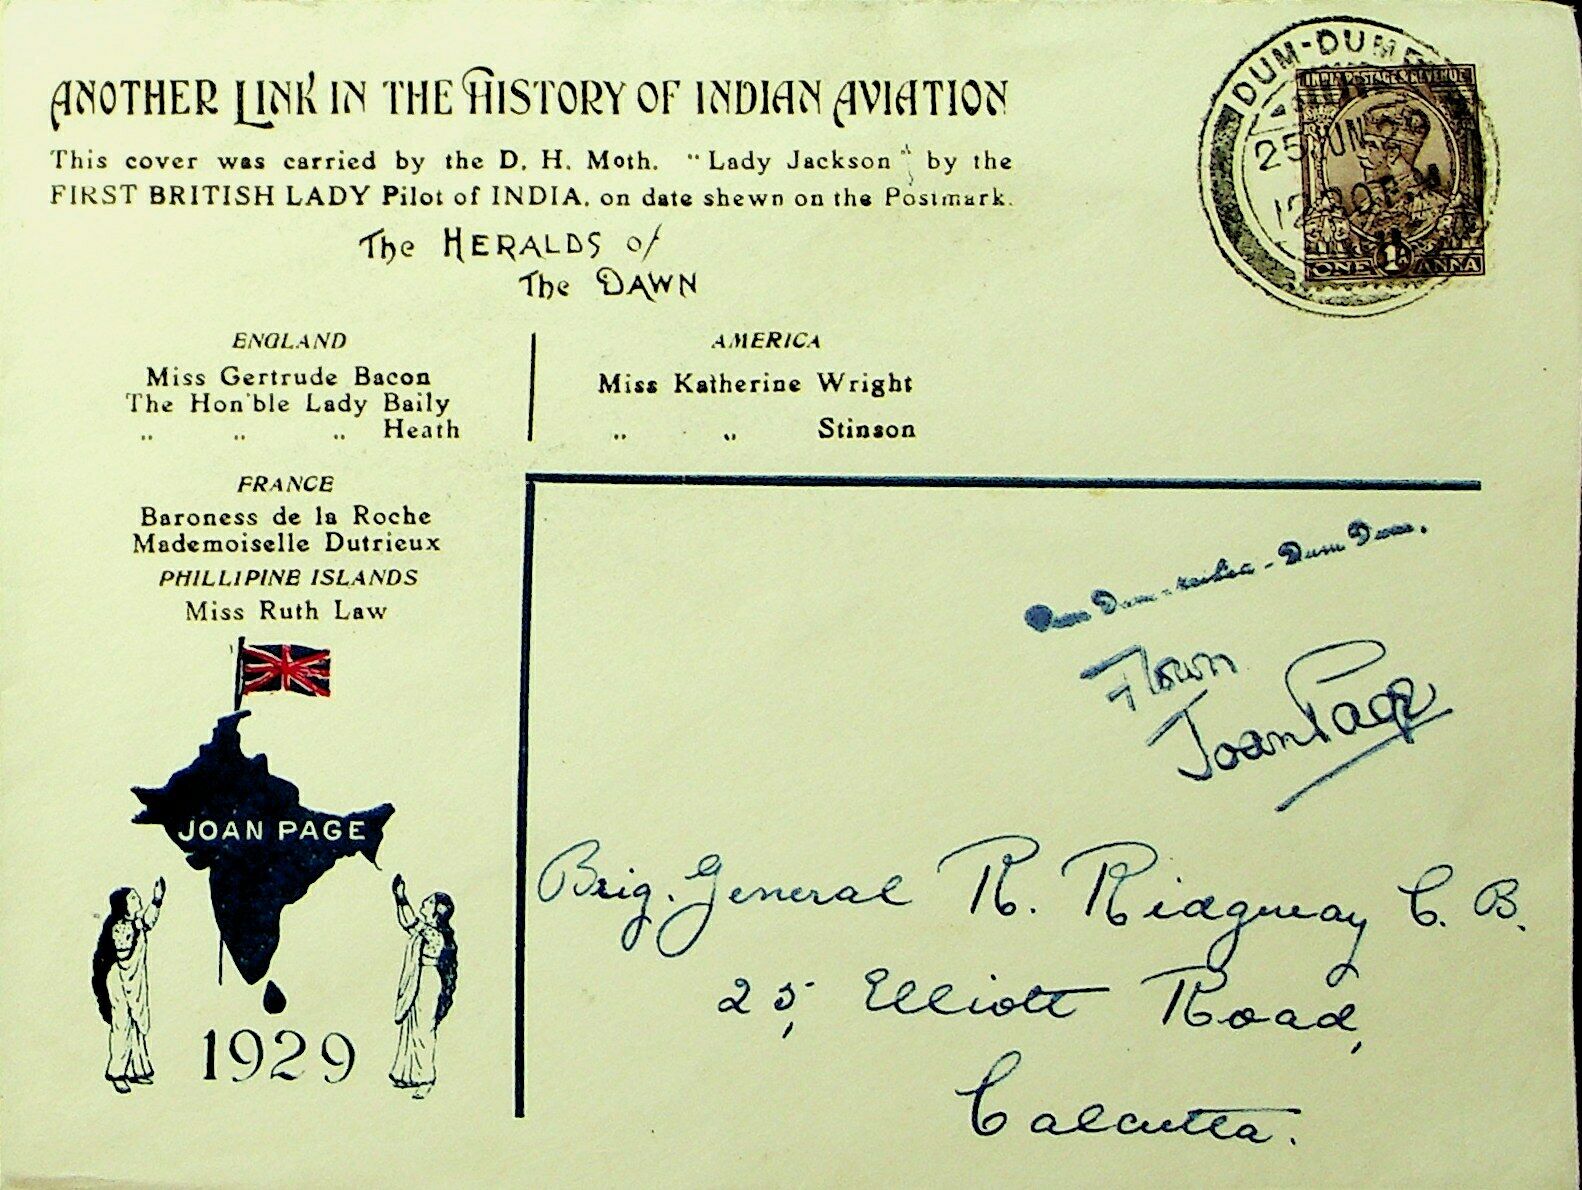 ANOTHER LINK IN THE HISTORY OF INDIAN AVIATION
This cover was carried by the D. H. Moth. "Lady Jackson" by the
FIRST BRITISH LADY Pilot of INDIA, on date shewn on the Postmark.
The HERALDS of
The DAWN
ENGLAND
Miss Gertrude Bacon
The Hon'ble Lady Baily
„ „ „ Heath
AMERICA
Miss Katherine Wright
„ „ Stinson
FRANCE
Baroness de la Roche
Mademoiselle Dutrieux
PHILLIPINE ISLANDS
Miss Ruth Law
JOAN PAGE
1929
DUM-DUM
25 JUN 29
12
INDIA POSTAGE & REVENUE
ONE 1A ANNA
Dum Dum - Dum Dum.
Flown
Joan Page
Brig. General R. Ridgway C. B.
25, Elliott Road,
Calcutta.